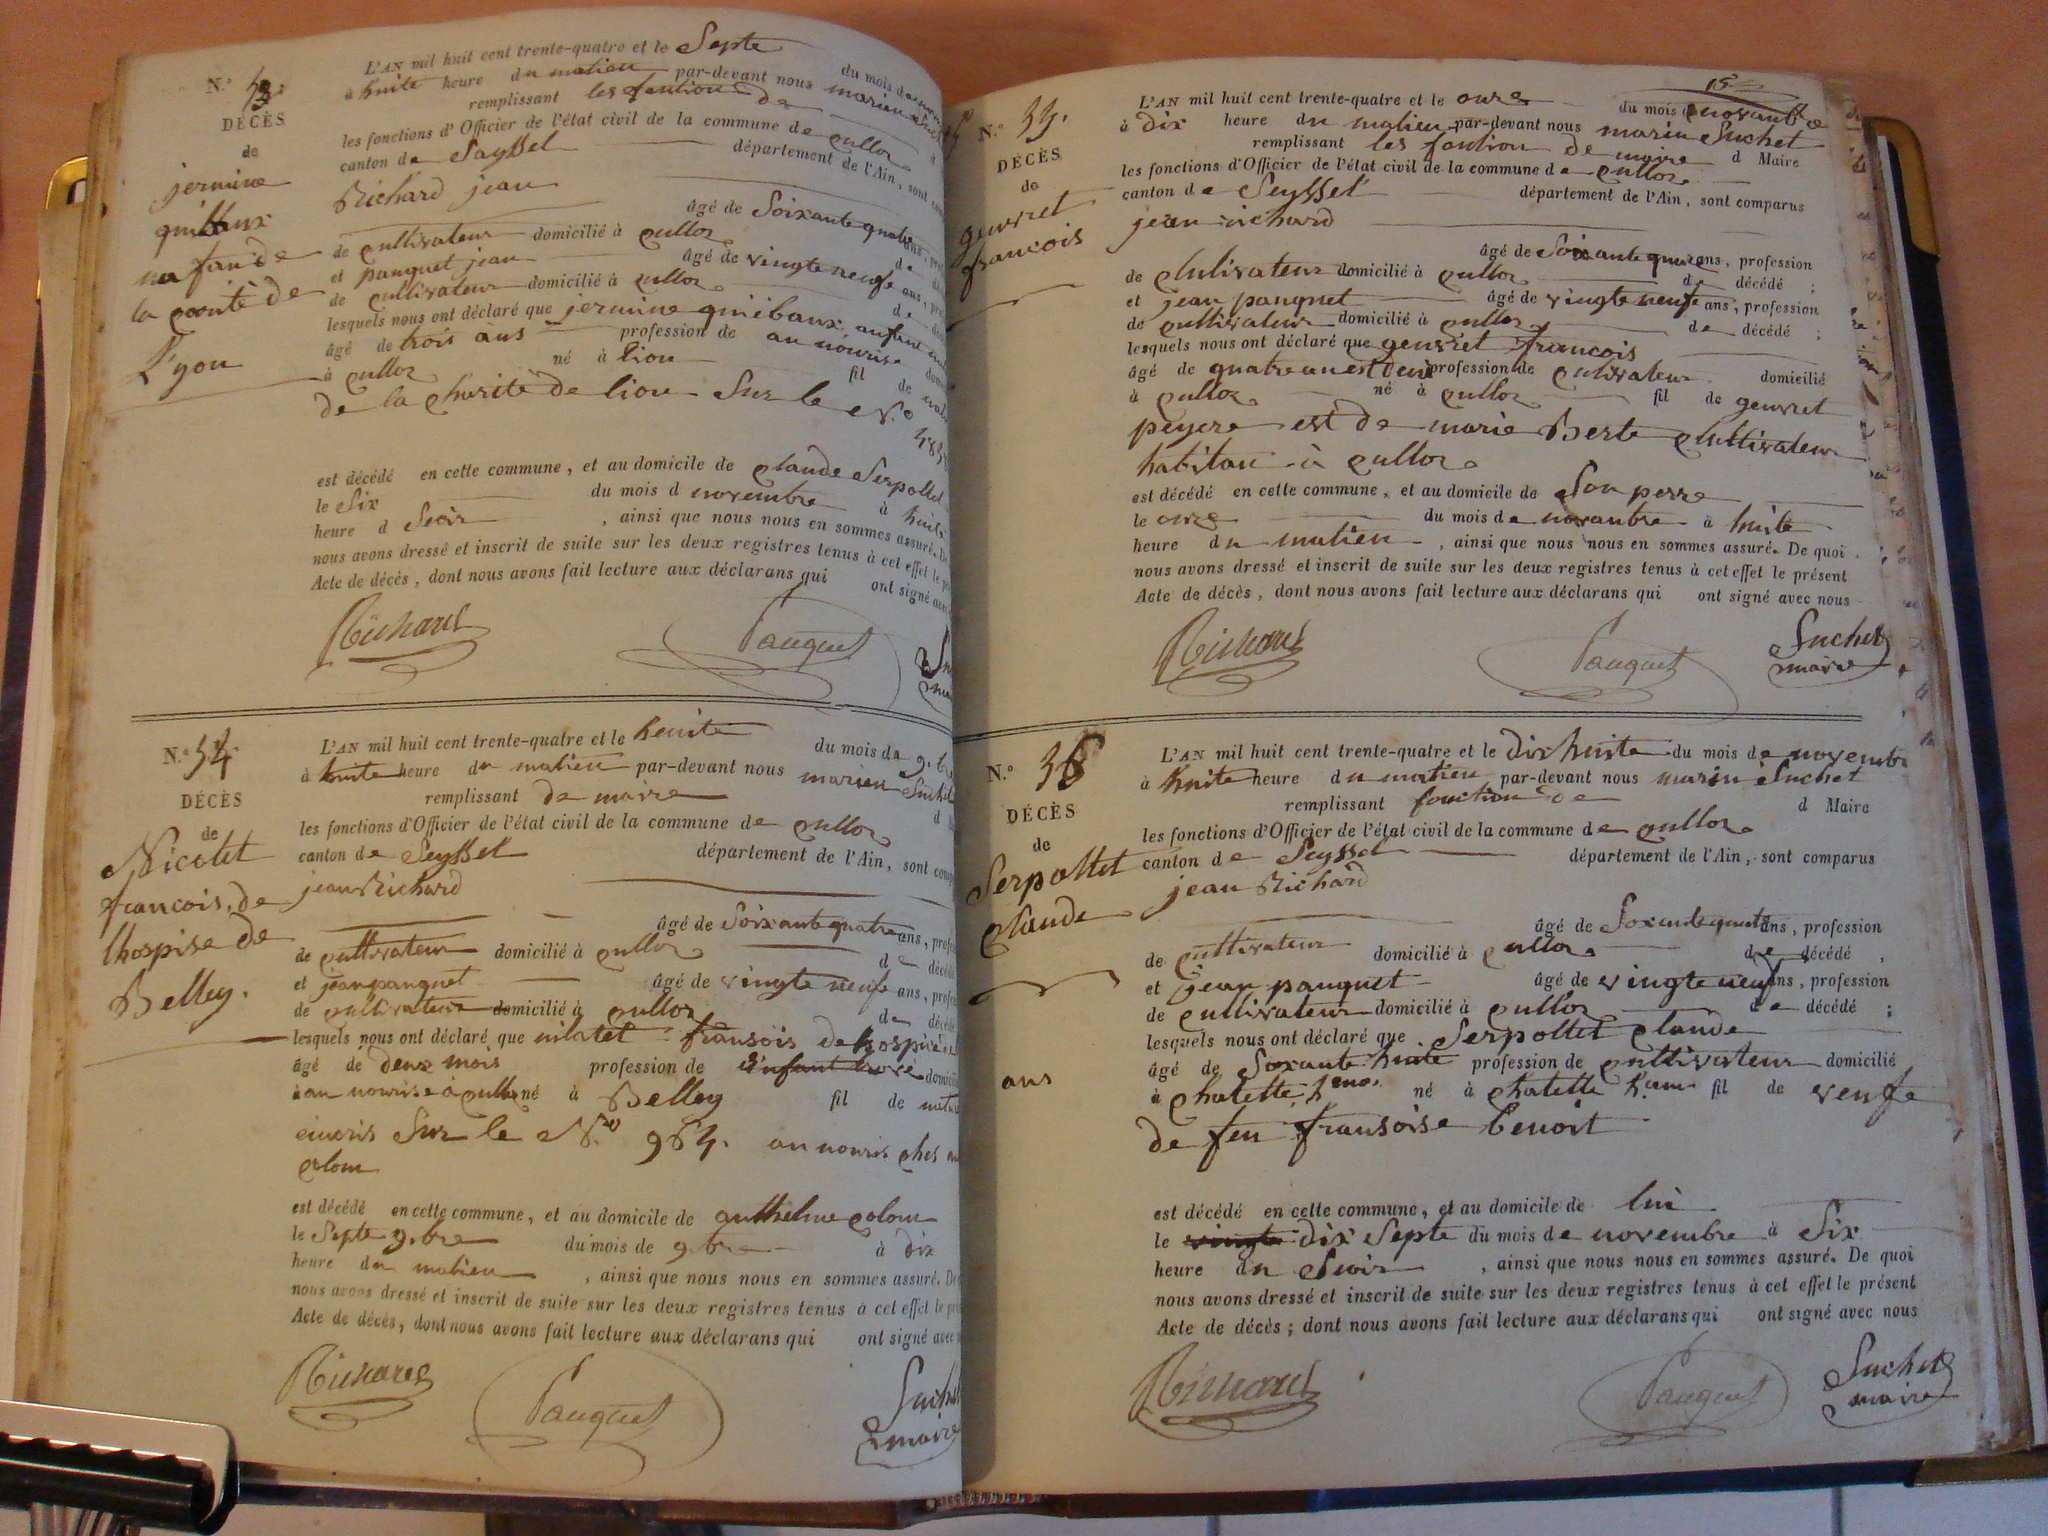 N.° 53.
DÉCÈS
de
jermine
quibaux
la
Lyon
L'AN mil huit cent trente-quatre et le Septe du mois de
à huite heure du matieu par-devant nous marieu
remplissant les fontion de
les fonctions d'Officier de l'état civil de la commune de cullor
canton de Sayssel département de l'Ain, sont
Richard jean
âgé de Soixante quatre ans,
de cultivateur domicilié à cullor de
et pauquet jean âgé de vingte neufe ans,
de cultivateur domicilié à cullor de
lesquels nous ont déclaré que jermine quiebaux enfant
âgé de trois ans profession de au nourise
à cullor né à liou fil de
de la charité de liou Sur le N.°
est décédé en cette commune, et au domicile de claude Serpollet
le Six du mois d novembre à huite
heure d Swoir , ainsi que nous nous en sommes assuré.
nous avons dressé et inscrit de suite sur les deux registres tenus à cet effet le
Acte de décès, dont nous avons fait lecture aux déclarans qui ont signé
Richard Pauquet
N.° 54.
DÉCÈS
de
Nicolet
francois, de
lhospise de
Belley.
L'AN mil huit cent trente-quatre et le heuite du mois de 9.bre
à huite heure du matieu par-devant nous marieu Suchet
remplissant de maire d
les fonctions d'Officier de l'état civil de la commune de cullor
canton de Seyssel département de l'Ain, sont
jean Richard
âgé de Soixante quatre ans,
de cultivateur domicilié à cullor de
et jean pauquet âgé de vingte neufe ans,
de cultivateur domicilié à cullor de
lesquels nous ont déclaré que nilatet fransois de hospice
âgé de deux mois profession de
à au nourise à cullor né à Belley fil de
Sur le N.° 964. au nouris ches
colom
est décédé en cette commune, et au domicile de anthelme colom
le Septe 9.bre du mois de 9.bre à dix
heure du matieu , ainsi que nous nous en sommes assuré.
nous avons dressé et inscrit de suite sur les deux registres tenus à cet effet le
Acte de décès, dont nous avons fait lecture aux déclarans qui ont signé avec
Richard Pauquet Suchet
maire
15
N.° 55.
DÉCÈS
de
geuvret
francois
L'AN mil huit cent trente-quatre et le onze du mois novanbre
à dix heure du matieu par-devant nous marin Suchet
remplissant les fontion de maire d Maire
les fonctions d'Officier de l'état civil de la commune de cullor
canton de Seyssel département de l'Ain, sont comparus
jean richard
âgé de Soixante quatre ans, profession
de clutivateur domicilié à cullor de décédé ;
et jean pauquet âgé de vingte neufe ans, profession
de cultivateur domicilié à cullor de décédé ;
lesquels nous ont déclaré que geuvret francois
âgé de quatre an est demi profession de cultivateur domicilié
à cullor né à cullor fil de geuvret
peyere est de marie Berte clultivateur
habitan à cullor
est décédé en cette commune, et au domicile de Son perre
le onze du mois de novanbre à huite
heure du matieu , ainsi que nous nous en sommes assuré. De quoi
nous avons dressé et inscrit de suite sur les deux registres tenus à cet effet le présent
Acte de décès, dont nous avons fait lecture aux déclarans qui ont signé avec nous
Richard Pauquet Suchet
maire
N.° 56
DÉCÈS
de
Serpollet
claude
ans
L'AN mil huit cent trente-quatre et le dix huite du mois de novembre
à huite heure du matieu par-devant nous marin Suchet
remplissant fonction de d Maire
les fonctions d'Officier de l'état civil de la commune de cullor
canton de Seyssel département de l'Ain, sont comparus
jean Richard
âgé de Soxante quatre ans, profession
de cultivateur domicilié à cullor de décédé ,
et jean pauquet âgé de vingte neuf ans, profession
de cultivateur domicilié à cullor de décédé ;
lesquels nous ont déclaré que Serpollet claude
âgé de Soxante huite profession de cultivateur domicilié
à chatette né à chatette fil de veufe
de feu fransoise benoit
est décédé en cette commune, et au domicile de lui
le vingte dix Septe du mois de novembre à Six
heure du Swoir , ainsi que nous nous en sommes assuré. De quoi
nous avons dressé et inscrit de suite sur les deux registres tenus à cet effet le présent
Acte de décès ; dont nous avons fait lecture aux déclarans qui ont signé avec nous
Richard Pauquet Suchet
maire